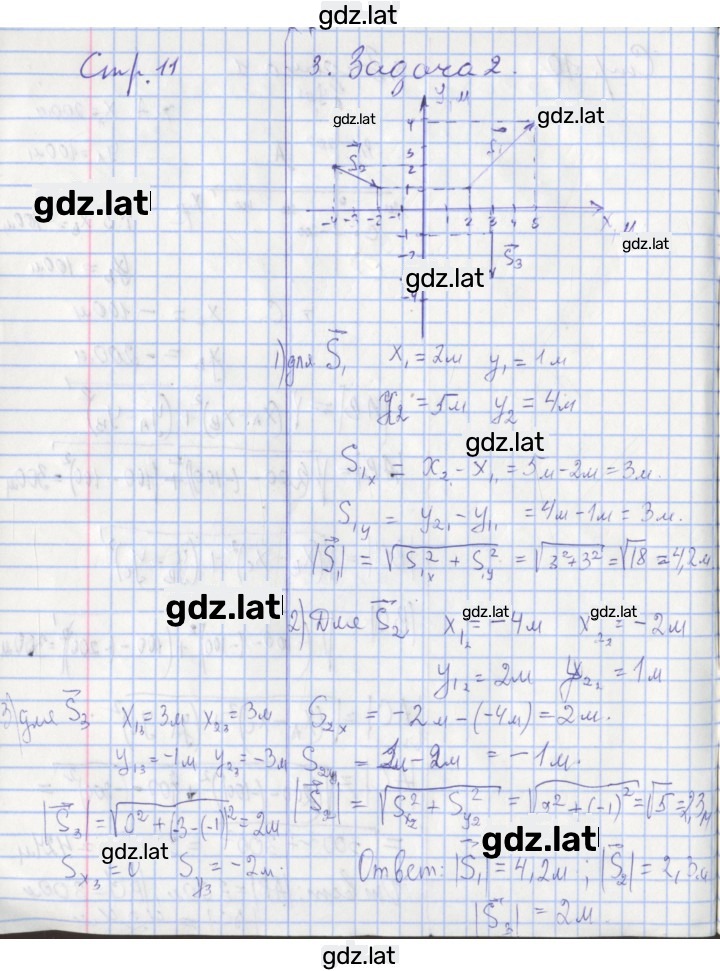 gdz.lat
Стр. 11
3. Задача 2.
y, м
gdz.lat
gdz.lat
4
3
2
1
S₁
S₂
gdz.lat
-4 -3 -2 -1 1 2 3 4 5
x, м
gdz.lat
-1
-2
S₃
gdz.lat
-4
1) для S₁ x₁ = 2м y₁ = 1м
y₂ = 5м y₂ = 4м
gdz.lat
S₁ₓ = x₂ - x₁ = 5м - 2м = 3м.
S₁y = y₂₁ - y₁₁ = 4м - 1м = 3м.
|S₁| = √S₁ₓ² + S₁y² = √3² + 3² = √18 = 4,2м
gdz.lat
gdz.lat
gdz.lat
2) Для S₂ x₁₂ = -4м x₂₂ = -2м
y₁₂ = 2м y₂₂ = 1м
S₂ₓ = -2м - (-4м) = 2м.
S₂y = 1м - 2м = -1м.
|S₂| = √Sₓ₂² + Sy₂² = √2² + (-1)² = √5 = 2,3м
3) для S₃ x₁₃ = 3м x₂₃ = 3м
y₁₃ = -1м y₂₃ = -3м
|S₃| = √0² + (-3 - (-1))² = 2м
gdz.lat
Sₓ₃ = 0 Sy₃ = -2м.
gdz.lat
Ответ: |S₁| = 4,2м ; |S₂| = 2,3м
|S₃| = 2м.
gdz.lat